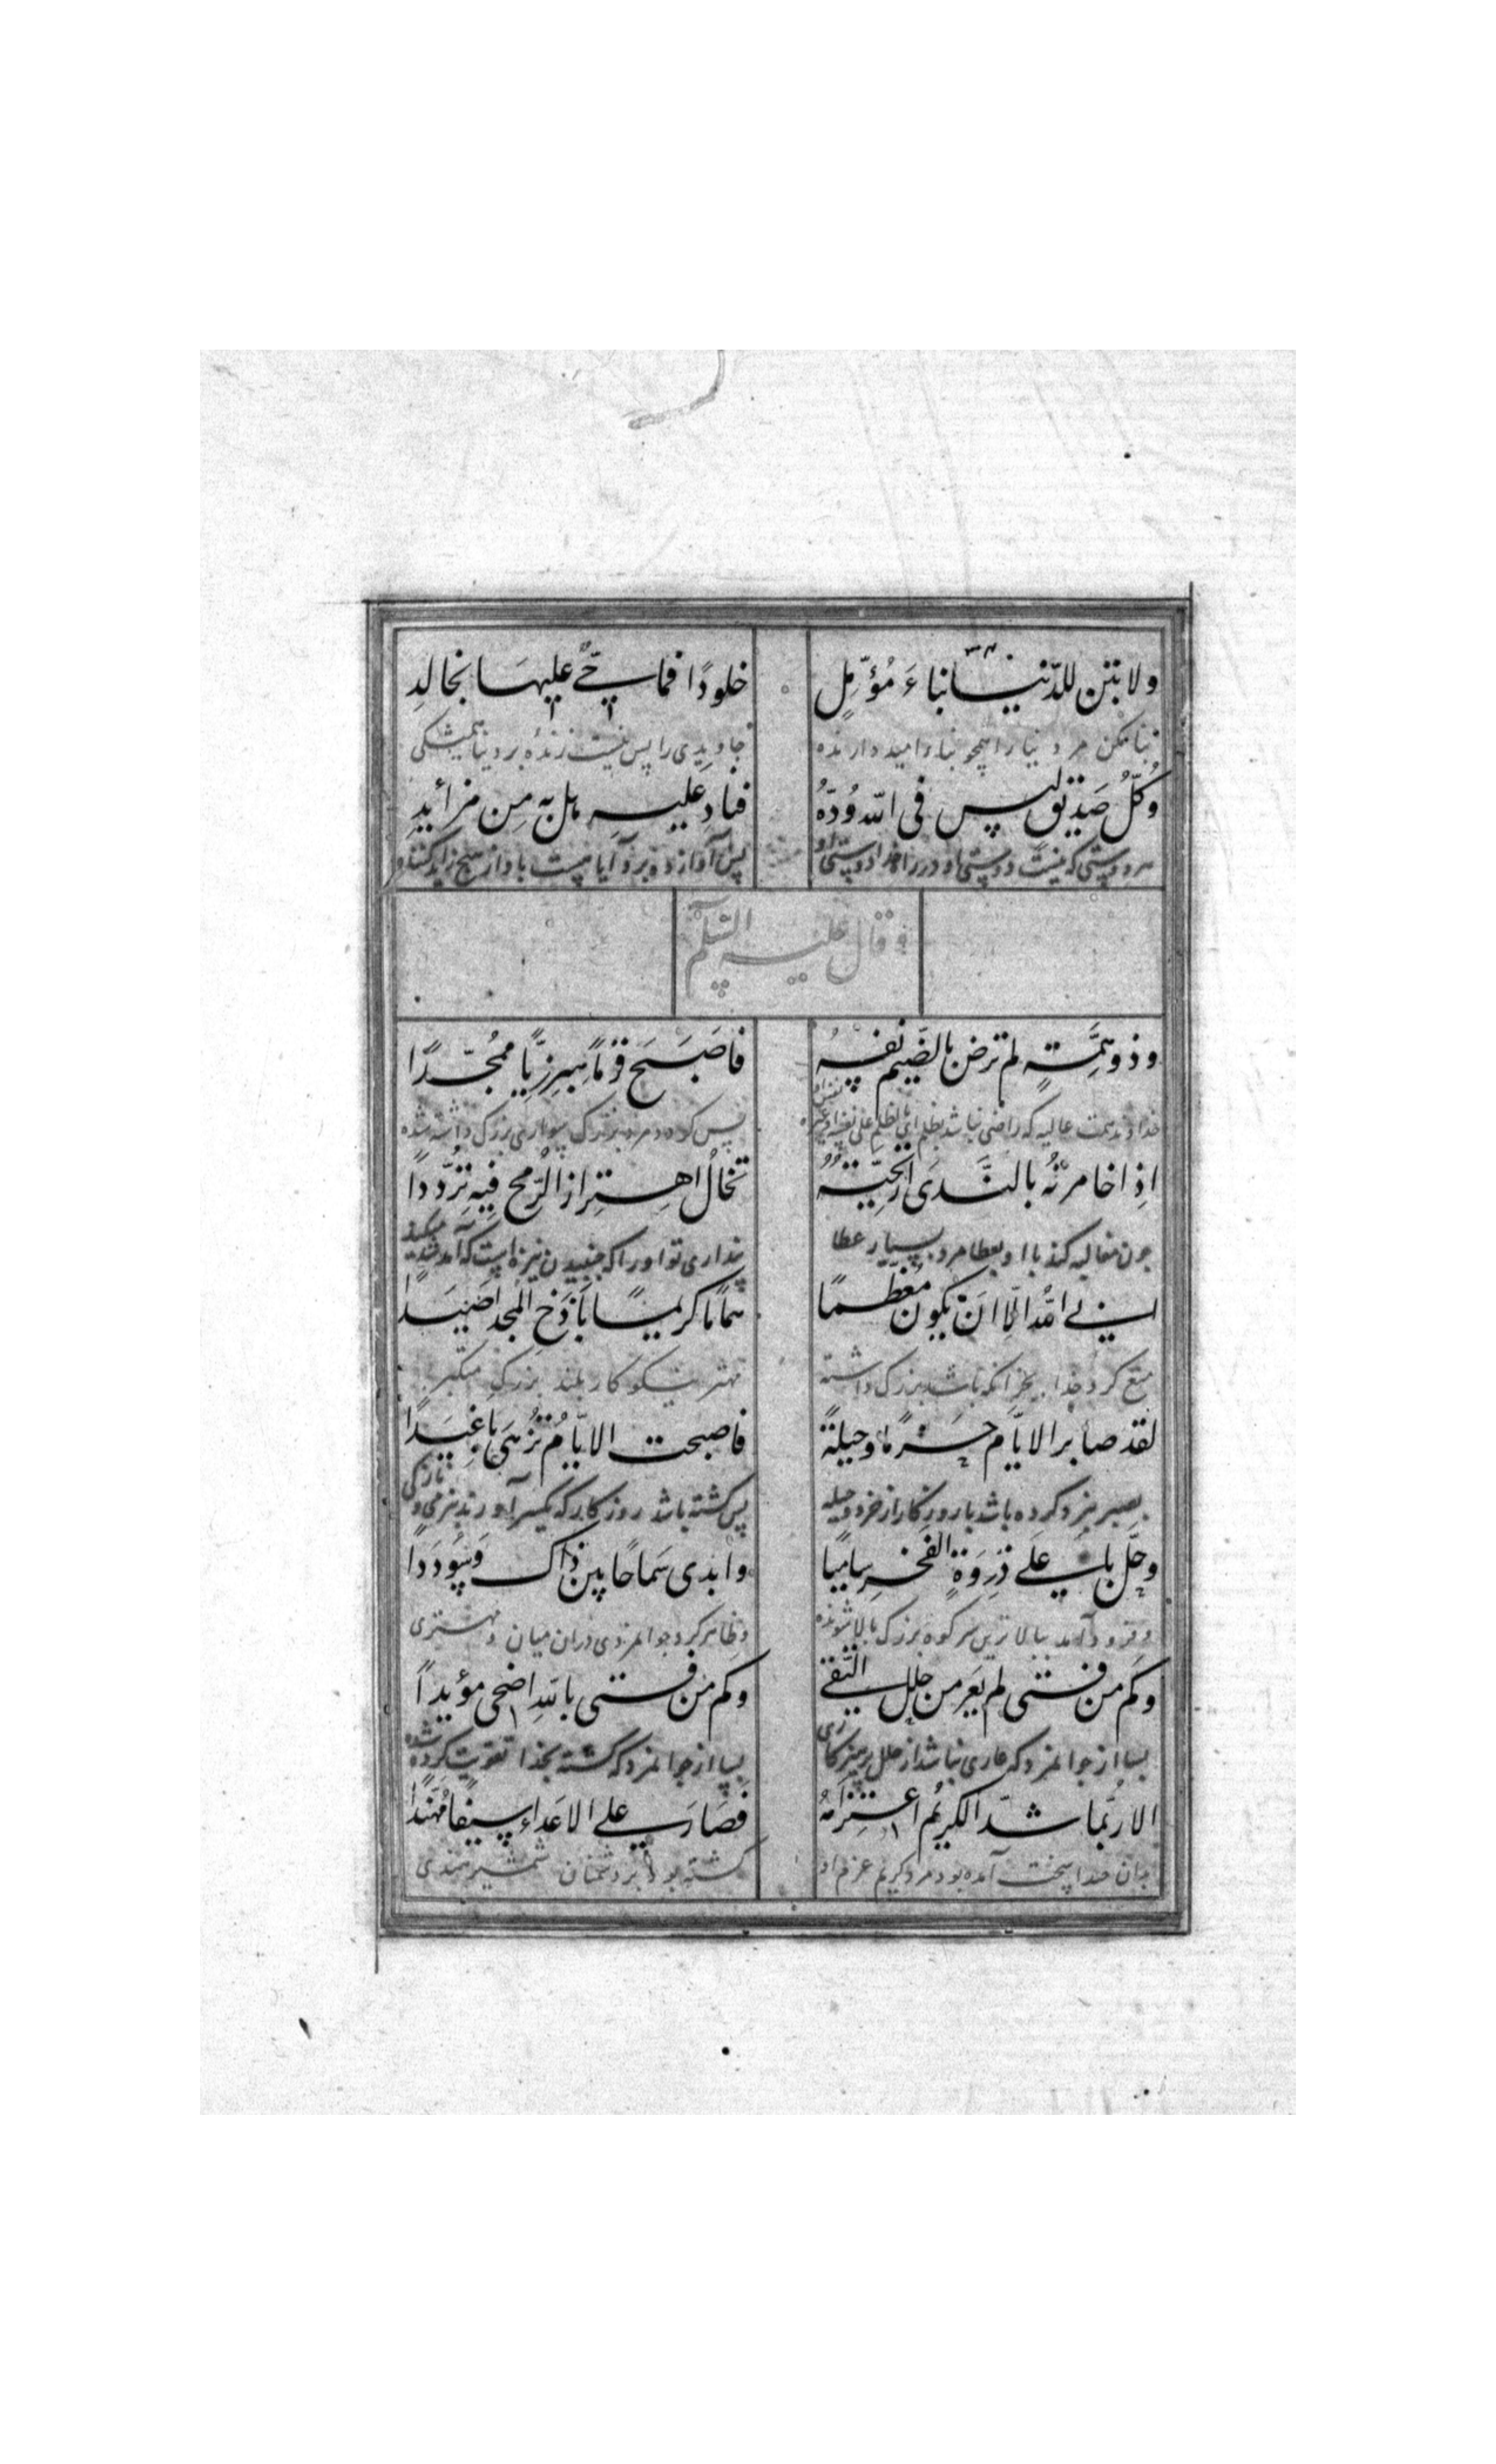 ولا تبنِ للدّنیا بناءَ مُؤمِّلٍ خلودًا فما حیٌّ علیهَا بخالدِ
بنا مکن مر دنیا را همچو بناء امید دارنده جاویدی را پس نیست زندهٔ بر دنیا همیشگی
وکُلُّ صَدیقٍ لیس فی اللّه وُدّهُ فنادِ علیهِ هل به مِن مزائدِ
هر دوستی که نیست دوستی او در راه خدا دوستی او پس آواز ده برو آیا نیست باو از هیچ زاید کننده
وقال علیه السّلم
وذو همَّتِهٍ لم ترضَ بالضَّیم نفسهُ فاصَبَحَ قرْماً مبرزیًّا ممُجّدًا
خداوند همت عالیه که راضی نباشد بظلم نفس او پس کرده مرد بزرک سواری بزرک داشته شده
اذِا خامرتْهُ بالنَّدیَ ارْیحیّتهُ تخالُ اهتزازَ الرُّمحِ فیهِ تردُّدًا
چون مخالبه کند با او بعطا مرد بسیار عطا پنداری تو او را که جنبیدن نیزه است که آمد شد میکند
ابی اللهُ الّا انَ یکونُ مُعظمًا هُمامًا کریمًا باذخَ المجد اصَیَدا
منع کرد خدا بجز آنکه باشد بزرک داشته مهتر نیکو کار بلند بزرک متکبر
لقد صابر الایّام حَزمًا وحیلةً فاصبحت الایّامُ تُزهَی باغیَدًا
بصبر نبرد کرده باشد با روزکار از خرد و حیله پس کشته باشد روزکار که یکسر آورند بنرمی و نازکی
وحلّ باعلی ذَروَة الفخرِ سامیًا وابدی سَماحًا بین ذاک وَسُوددًا
و فرود آمد ببالاترین سر کوه بزرک بالا شونده و ظاهر کرد جوانمردی دران میان و مهتری
وکم من فتی لم یَعرَ من حلل التّقی وکم من فتی باللهِ اضحی مؤیدًا
بسا از جوانمرد که عاری نباشد از حلل پرهیز کاری بسا از جوانمرد که کشته بخدا تقویت کرده شده
الا ربّما شدّ الکریُم اعتزامَهُ فَصَارَ علی الاعَداءِ سیفًا مُهَنّدًا
بدان خدا سخت آمده بود مرد کریم عزم او کشته بود بر دشمنان شمشیر هندی